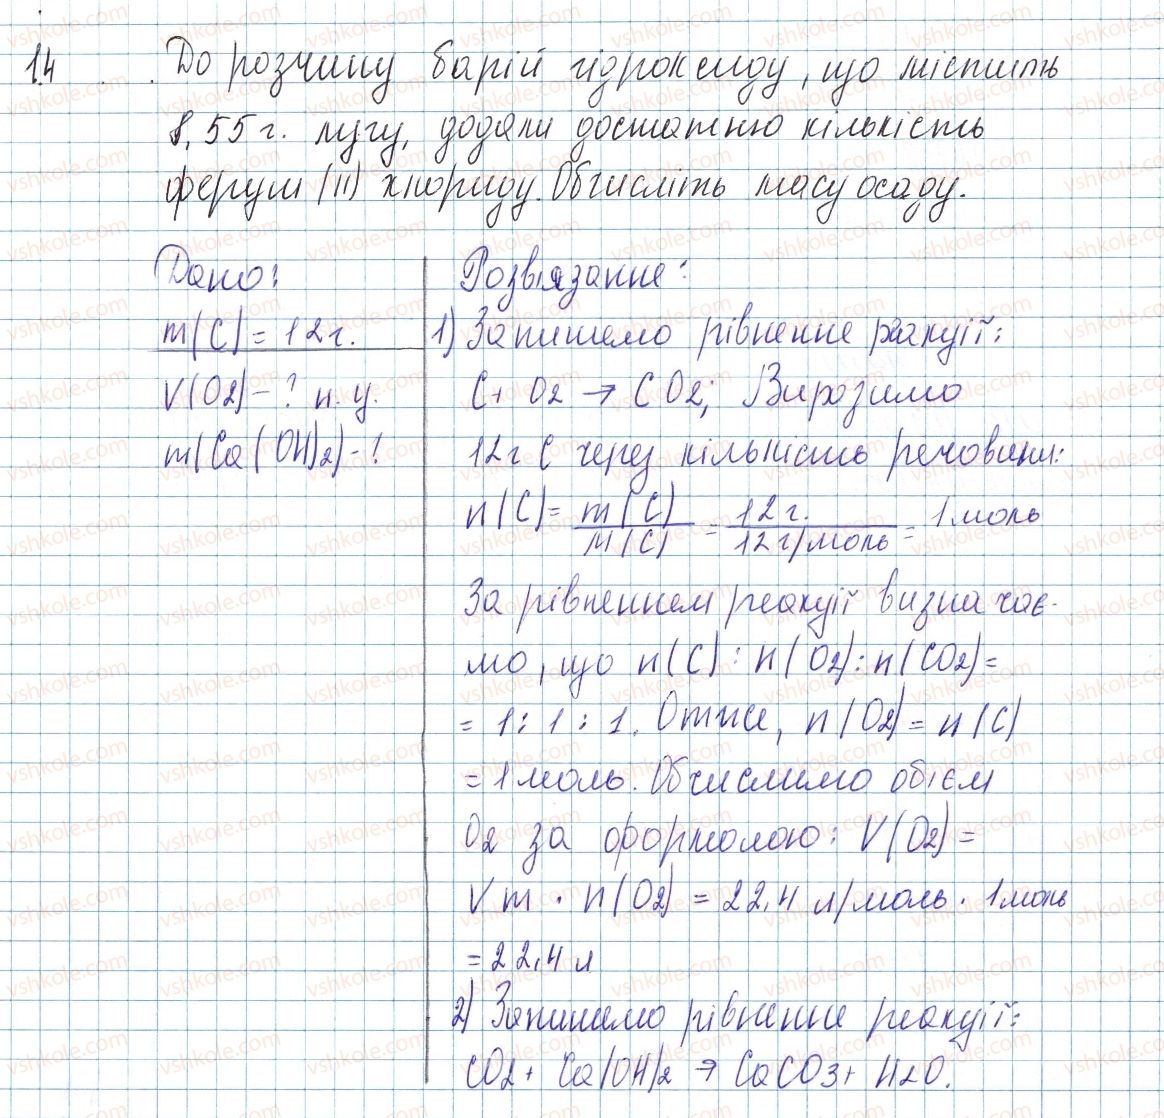 14 До розчину барій гідроксиду, що містить
8,55 г. лугу, додали достатню кількість
ферум (II) хлориду. Обчисліть масу осаду.
Дано:
m(C) = 12 г.
V(O2) - ? н. у.
m(Ca(OH)2) - ?
Розв'язання:
1) Запишемо рівнення реакції:
C + O2 → CO2; Виразимо
12 г C через кількість речовини:
n(C) = m(C) / M(C) = 12 г. / 12 г/моль = 1 моль
За рівненнєм реакції визначає-
мо, що n(C) : n(O2) : n(CO2) =
= 1 : 1 : 1. Отже, n(O2) = n(C)
= 1 моль. Обчислимо об'єм
O2 за формолою: V(O2) =
Vm · n(O2) = 22,4 л/моль · 1 моль
= 22,4 л
2) Запишемо рівнення реакції:
CO2 + Ca(OH)2 → CaCO3 + H2O.